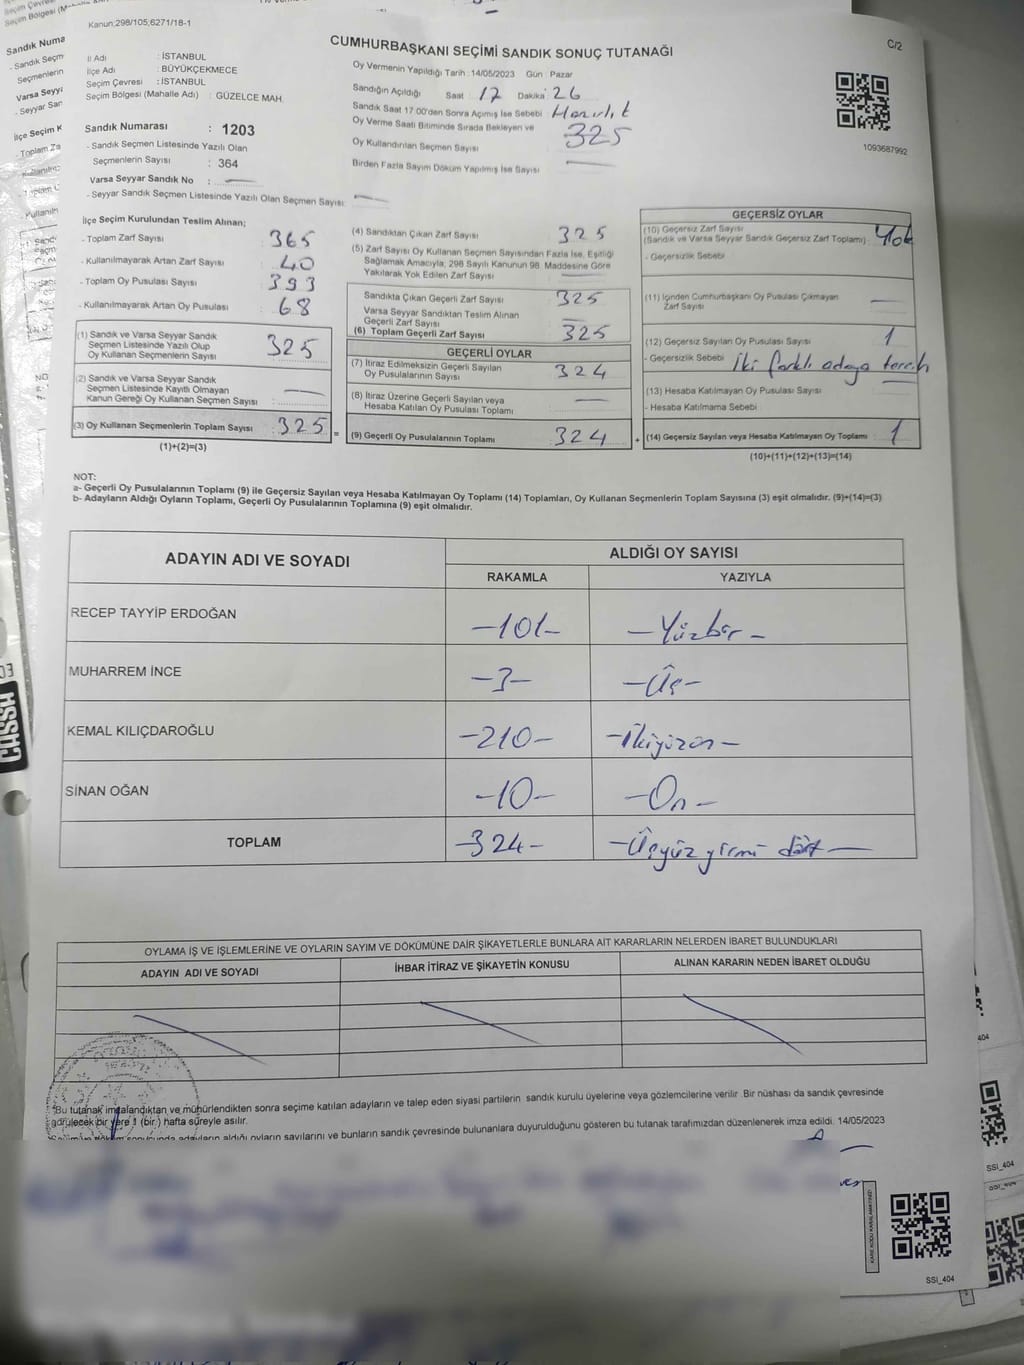 Kanun;298/105;6271/18-1
CUMHURBAŞKANI SEÇİMİ SANDIK SONUÇ TUTANAĞI
C/2
İl Adı : İSTANBUL
İlçe Adı : BÜYÜKÇEKMECE
Seçim Çevresi : İSTANBUL
Seçim Bölgesi (Mahalle Adı) : GÜZELCE MAH.
Sandık Numarası : 1203
- Sandık Seçmen Listesinde Yazılı Olan
Seçmenlerin Sayısı : 364
Varsa Seyyar Sandık No :
- Seyyar Sandık Seçmen Listesinde Yazılı Olan Seçmen Sayısı:
Oy Vermenin Yapıldığı Tarih :14/05/2023 Gün : Pazar
Sandığın Açıldığı Saat : 17 Dakika: 26
Sandık Saat 17:00'den Sonra Açımış İse Sebebi
Oy Verme Saati Bitiminde Sırada Bekleyen ve
Oy Kullandırılan Seçmen Sayısı 325
Birden Fazla Sayım Döküm Yapılmış İse Sayısı
1093687992
İlçe Seçim Kurulundan Teslim Alınan;
- Toplam Zarf Sayısı : 365
- Kullanılmayarak Artan Zarf Sayısı : 40
- Toplam Oy Pusulası Sayısı : 393
- Kullanılmayarak Artan Oy Pusulası : 68
(1) Sandık ve Varsa Seyyar Sandık
Seçmen Listesinde Yazılı Olup
Oy Kullanan Seçmenlerin Sayısı : 325
(2) Sandık ve Varsa Seyyar Sandık
Seçmen Listesinde Kayıtlı Olmayan
Kanun Gereği Oy Kullanan Seçmen Sayısı :
(3) Oy Kullanan Seçmenlerin Toplam Sayısı : 325
(1)+(2)=(3)
=
(4) Sandıktan Çıkan Zarf Sayısı : 325
(5) Zarf Sayısı Oy Kullanan Seçmen Sayısından Fazla İse, Eşitliği
Sağlamak Amacıyla; 298 Sayılı Kanunun 98. Maddesine Göre
Yakılarak Yok Edilen Zarf Sayısı :
Sandıkta Çıkan Geçerli Zarf Sayısı : 325
Varsa Seyyar Sandıktan Teslim Alınan
Geçerli Zarf Sayısı :
(6) Toplam Geçerli Zarf Sayısı : 325
GEÇERLİ OYLAR
(7) İtiraz Edilmeksizin Geçerli Sayılan
Oy Pusulalarının Sayısı : 324
(8) İtiraz Üzerine Geçerli Sayılan veya
Hesaba Katılan Oy Pusulası Toplamı :
(9) Geçerli Oy Pusulalarının Toplamı : 324
+
GEÇERSİZ OYLAR
(10) Geçersiz Zarf Sayısı
(Sandık ve Varsa Seyyar Sandık Geçersiz Zarf Toplamı) : Yok
- Geçersizlik Sebebi :
(11) İçinden Cumhurbaşkanı Oy Pusulası Çıkmayan
Zarf Sayısı
(12) Geçersiz Sayılan Oy Pusulası Sayısı : 1
- Geçersizlik Sebebi : İki farklı adaya tercih
(13) Hesaba Katılmayan Oy Pusulası Sayısı :
- Hesaba Katılmama Sebebi :
(14) Geçersiz Sayılan veya Hesaba Katılmayan Oy Toplamı : 1
(10)+(11)+(12)+(13)=(14)
NOT:
a- Geçerli Oy Pusulalarının Toplamı (9) ile Geçersiz Sayılan veya Hesaba Katılmayan Oy Toplamı (14) Toplamları, Oy Kullanan Seçmenlerin Toplam Sayısına (3) eşit olmalıdır. (9)+(14)=(3)
b- Adayların Aldığı Oyların Toplamı, Geçerli Oy Pusulalarının Toplamına (9) eşit olmalıdır.
ADAYIN ADI VE SOYADI
ALDIĞI OY SAYISI
RAKAMLA YAZIYLA
RECEP TAYYİP ERDOĞAN -101- -Yüzbir-
MUHARREM İNCE -3- -Üç-
KEMAL KILIÇDAROĞLU -210- -İkiyüzon-
SİNAN OĞAN -10- -On-
TOPLAM -324- -Üçyüz yirmi dört-
OYLAMA İŞ VE İŞLEMLERİNE VE OYLARIN SAYIM VE DÖKÜMÜNE DAİR ŞİKAYETLERLE BUNLARA AİT KARARLARIN NELERDEN İBARET BULUNDUKLARI
ADAYIN ADI VE SOYADI İHBAR İTİRAZ VE ŞİKAYETİN KONUSU ALINAN KARARIN NEDEN İBARET OLDUĞU
*Bu tutanak imzalandıktan ve mühürlendikten sonra seçime katılan adayların ve talep eden siyasi partilerin sandık kurulu üyelerine veya gözlemcilerine verilir. Bir nüshası da sandık çevresinde
görülecek bir yere 1 (bir) hafta süreyle asılır.
adayların aldığı oyların sayılarını ve bunların sandık çevresinde bulunanlara duyurulduğunu gösteren bu tutanak tarafımızdan düzenlenerek imza edildi. 14/05/2023
SSI_404
SSI_404